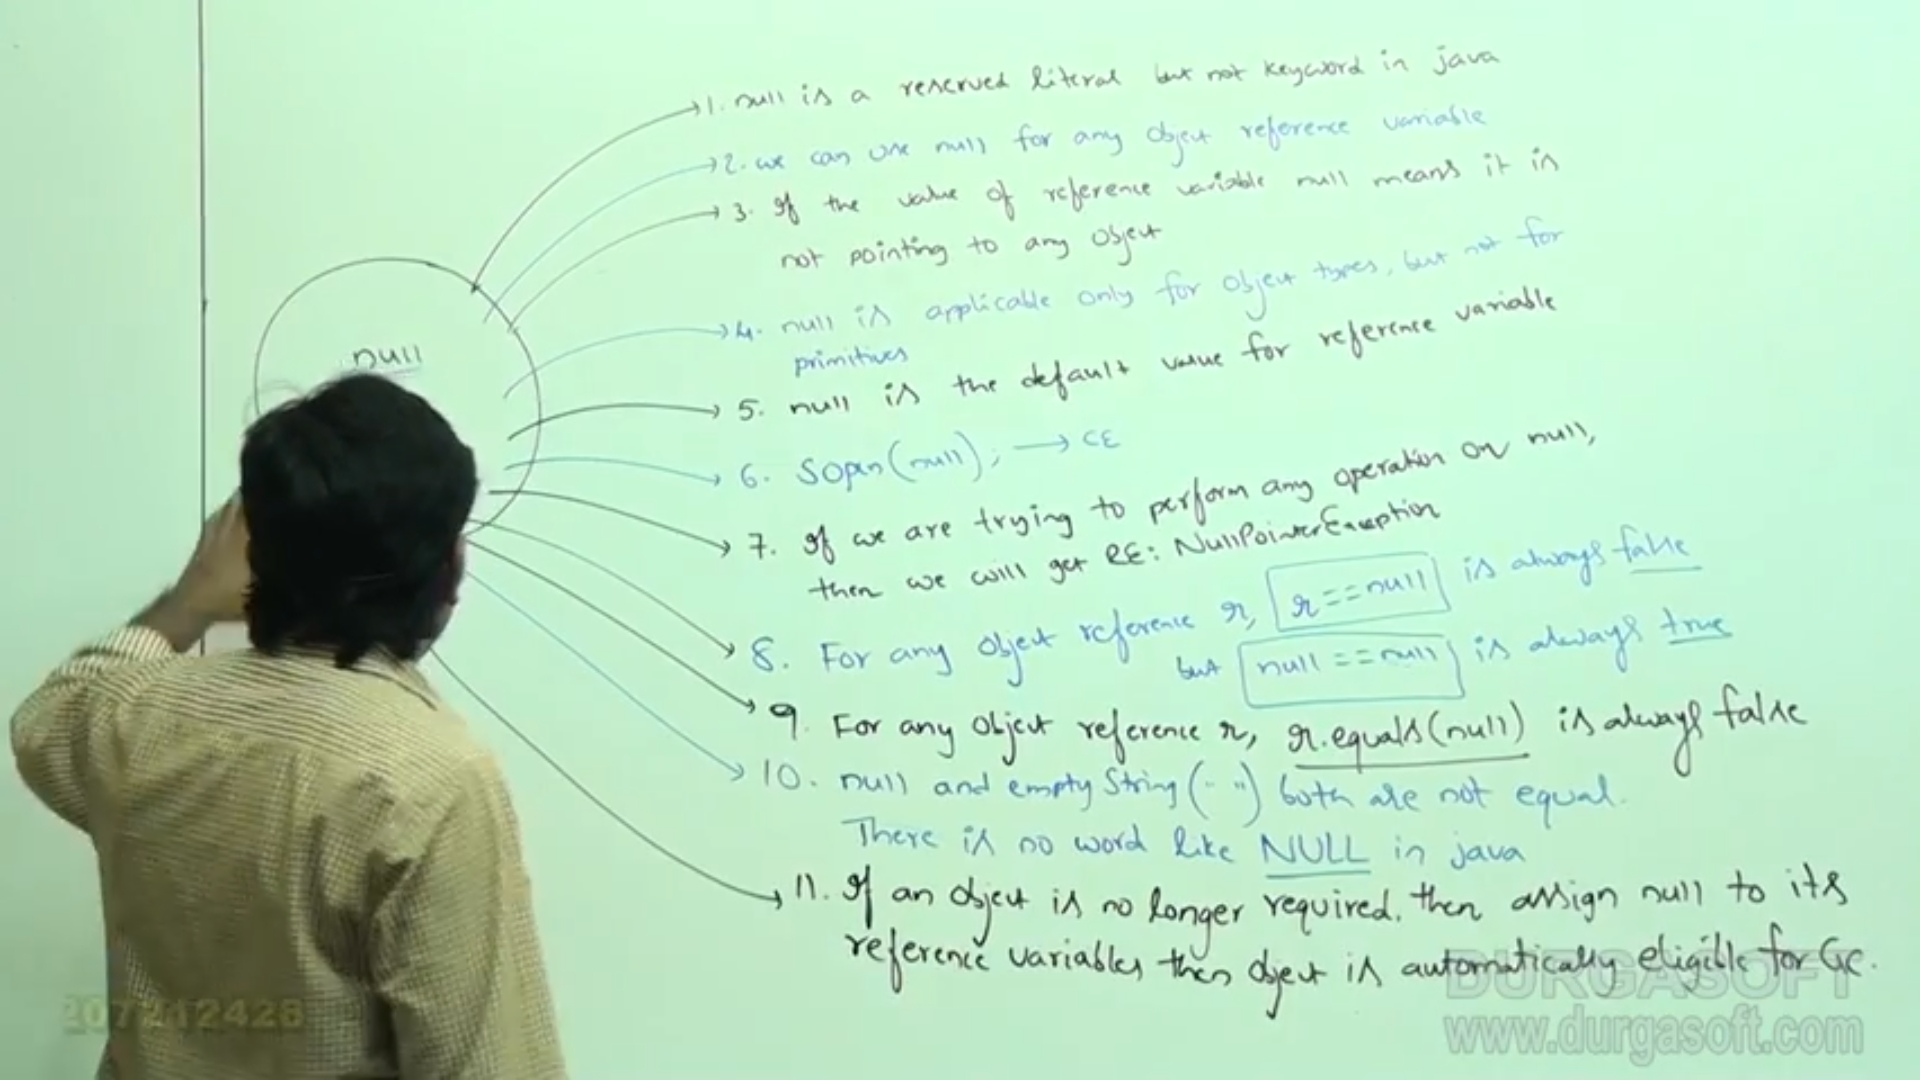 null
1. null is a reserved literal but not keyword in java
2. we can use null for any object reference variable
3. If the value of reference variable null means it is
not pointing to any object
4. null is applicable only for object types, but not for
primitives
5. null is the default value for reference variable
6. Sopln(null); → CE
7. If we are trying to perform any operation on null,
then we will get RE: NullPointerException
8. For any object reference r, r==null is always false
but null==null is always true
9. For any object reference r, r.equals(null) is always false
10. null and empty String(" ") both are not equal.
There is no word like NULL in java
11. If an object is no longer required, then assign null to its
reference variables then object is automatically eligible for GC.
DURGASOFT
www.durgasoft.com
207212428